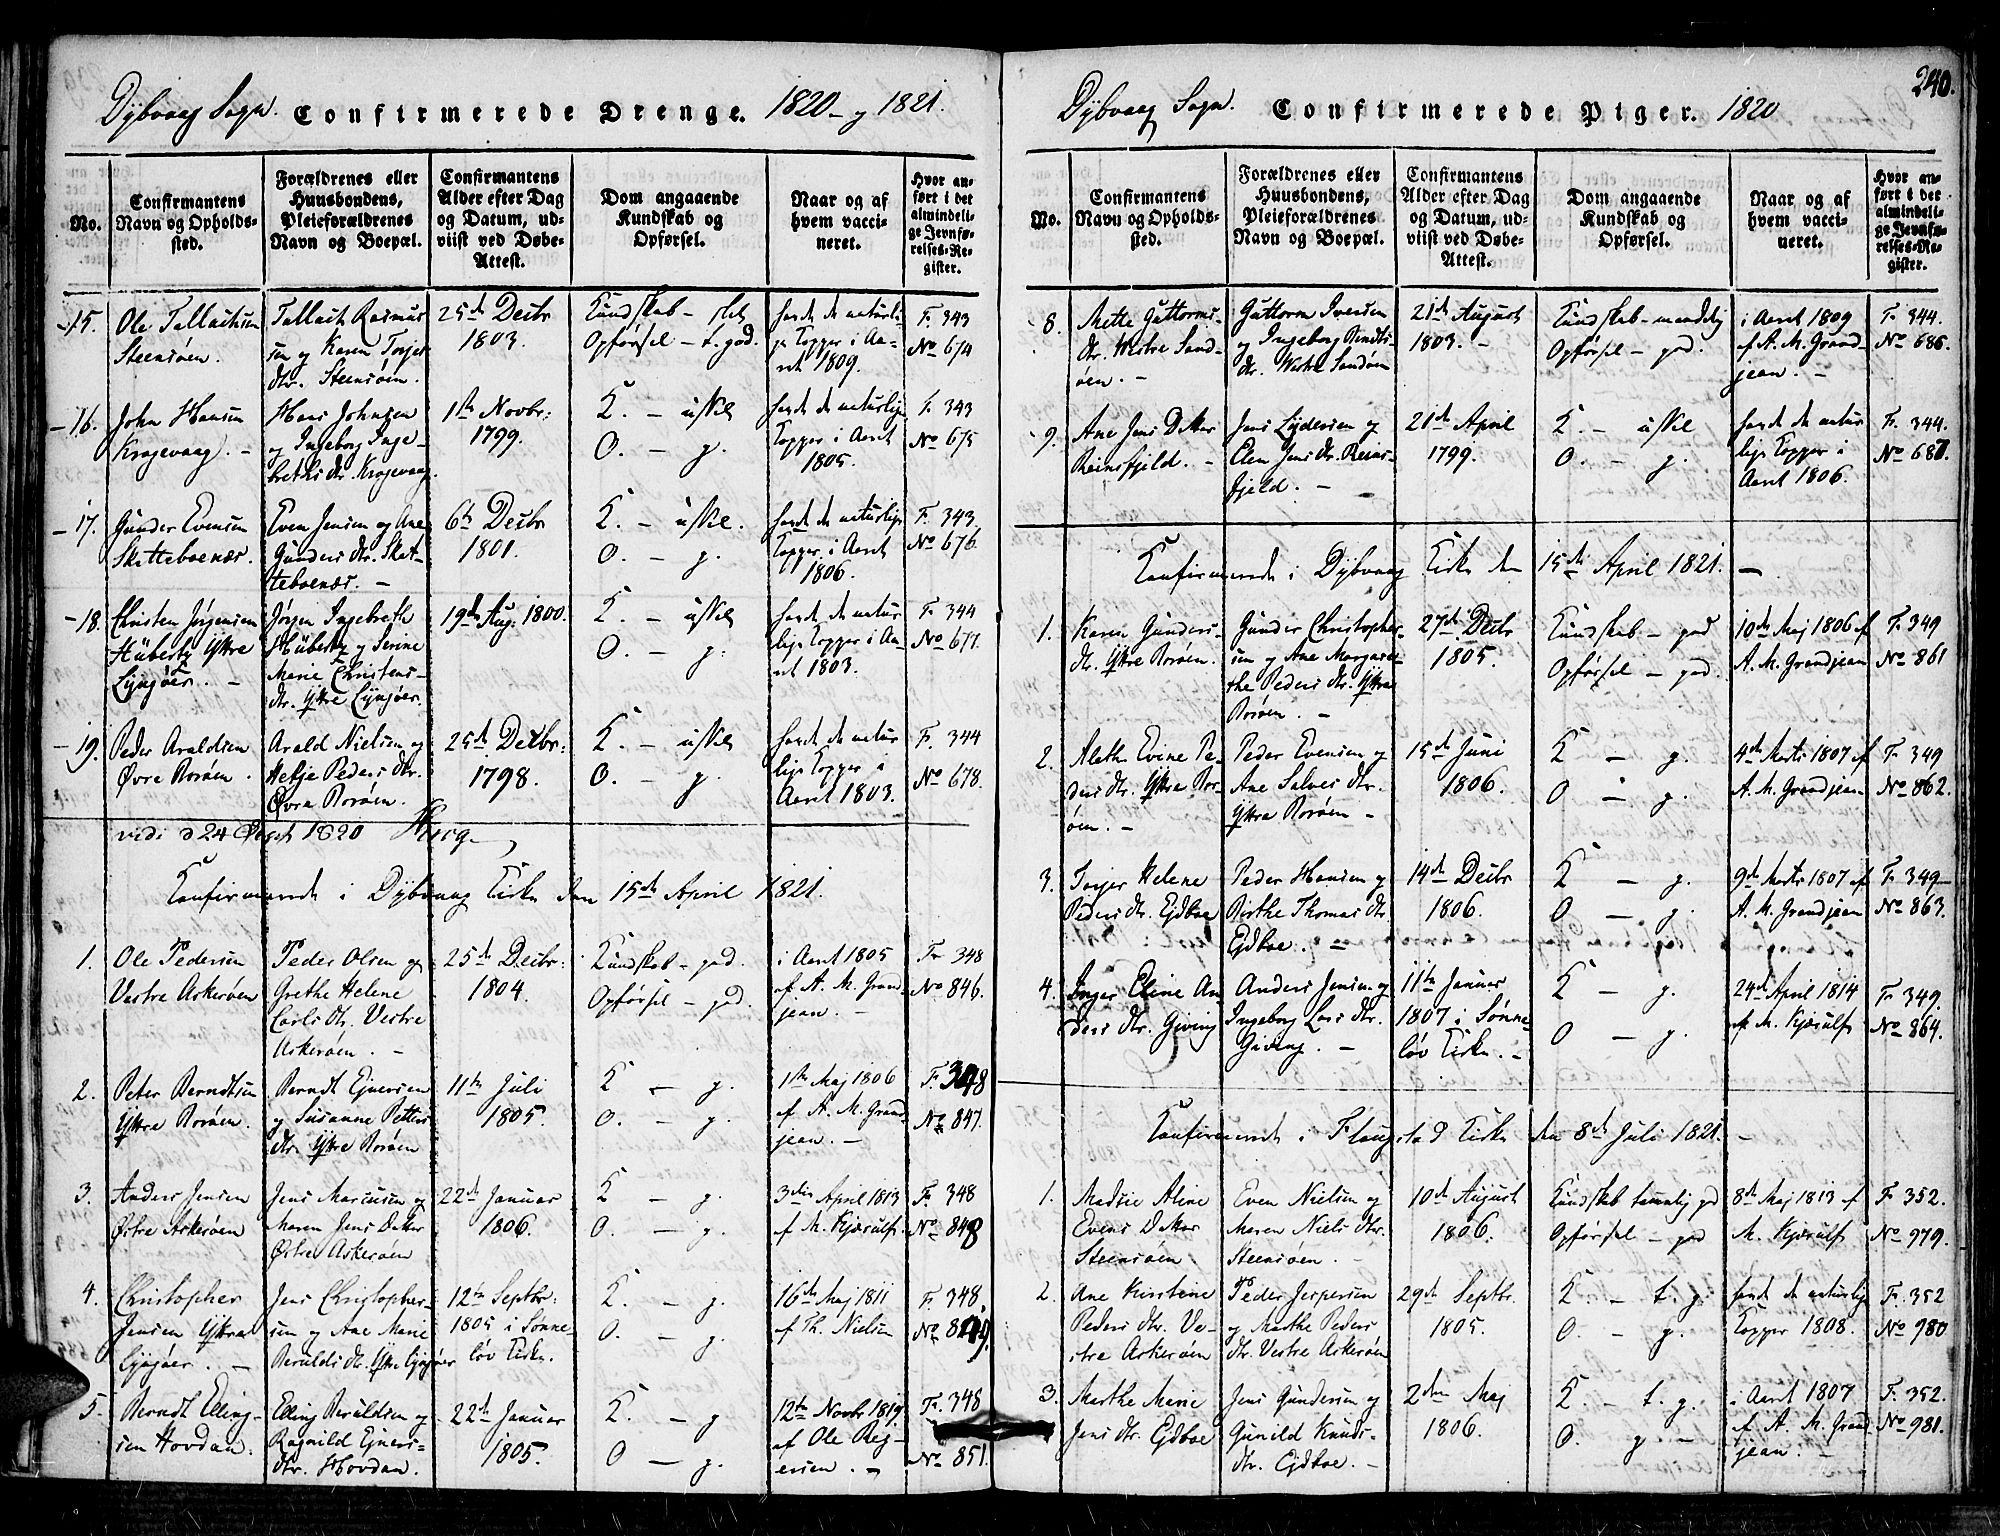 Dybvaag Sogn. Confirmerede Drenge. 1820 og 1821.
No.
Confirmantens
Navn og Opholds-
sted.
Forældrenes eller
Huusbondens,
Pleieforældrenes
Navn og Boepæl.
Confirmantens
Alder efter Dag
og Datum, ud-
viist ved Døbe-
Attest.
Dom angaaende
Kundskab og
Opførsel.
Naar og af
hvem vacci-
neret.
Hvor an-
ført i det
almindeli-
ge Jevnfø-
relses-Re-
gister.
15.
Ole Tallachsen
Steensøen.
Tallach Rasmus
sen og Karen Torjer
dtr. Steensøen.
25de Decbr
1803.
Kundskab - slet
Opførsel - t. god.
havde de naturli-
ge Kopper i Aa-
ret 1809.
F. 343
No 674
16.
John Hansen
Krogevaag. -
Hans Johnsen
og Ingeborg Inge-
brethsdtr. Krogevaag.
1ste Novbr:
1799.
K. - usKel
O. - g.
havde de naturlige
Kopper i Aaret
1805.
F. 343
No 675
17.
Gunder Evensen
Skatteboenæs.
Even Jensen og Ane
Gunders dtr. Skat-
teboenæs. -
6te Decbr
1801.
K. - usKel.
O. - g.
havde de naturlige
Kopper i Aaret
1806.
F. 343
No 676
18.
Christen Jørgensen
Hübertz Yttre
Lyngøer. -
Jørgen Ingebreth
Hübertz og Serine
Marie Christens-
dtr. Yttre Lyngøer.
19de Aug: 1800.
K. - usKel
O. - g.
havde de natur
lige Kopper i Aa-
ret 1803.
F. 344
No 677.
19.
Peder Araldsen
Øvre Borøen.
Arald Nielsen og
Helje Peders dtr.
Øvre Borøen.
25de Decbr:
1798.
K. - usKel
O. - g.
havde de natur
lige Kopper i
Aaret 1803.
F. 344
No 678.
vidi d 24 August 1820
Confirmerede i Dybvaag Kirke den 15de April 1821.
1.
Ole Pedersen
Vestre Askerøen
Peder Olsen og
Grethe Helene
Carls dtr. Vestre
Askerøen. -
25de Decbr:
1804.
Kundskab - god.
Opførsel - god.
i Aaret 1805
af A. M. Grand-
jean. -
F. 348
No 846.
2.
Peter Berndtsen
Yttre Borøen.
Berndt Ejnersen
og Susanne Petters
dtr. Yttre Borøen
11te Juli
1805.
K - g.
O. - g.
1ste Maj 1806
af A. M. Grand
jean. -
F. 348
No 847.
3.
Anders Jensen
Østre Askerøen
Jens Marcusen og
Maren Jens Datter
Østre Askerøen
22de Januar
1806.
K - g.
O. - g.
3die April 1813
af M. Kjærulf
F. 348
No 848
4.
Christopher
Jensen Yttre
Lyngøer. -
Jens Christopher-
sen og Ane Marie
Beruldsdtr. Yttre Lyngøer
12te Septbr:
1805 i Sønne-
løv Kirke.
K. - g.
O. - g.
16de Maj 1811
af Th. Nielsen
F. 348.
No 849.
5.
Berndt Elling-
sen Hovdan.
Elling Beruldsen og
Ragnild Ejners-
dtr. Hovdan.
22de Januar
1805.
K. - g
O - g.
12te Novbr 1819
af Ole Reg-
ersen. -
F. 348
No 851.
240.
Dybvaag Sogn. Confirmerede Piger. 1820
No.
Confirmantens
Navn og Opholds-
sted.
Forældrenes eller
Huusbondens,
Pleieforældrenes
Navn og Boepæl.
Confirmantens
Alder efter Dag
og Datum, ud-
viist ved Døbe-
Attest.
Dom angaaende
Kundskab og
Opførsel.
Naar og af
hvem vacci-
neret.
Hvor an-
ført i det
almindeli-
ge Jevnfø-
relses-Re-
gister.
8.
Mette Guttorms-
dtr. Westre Sand-
øen. -
Guttorm Iversen
og Ingeborg Berndts
dtr. Westre Sandøen
21de August
1803. -
Kundskab - maadelig
Opførsel - god.
i Aaret 1809
af A. M. Grand-
jean. -
F. 344.
No 686.
9.
Ane Jens Datter
Reinsfjeld. -
Jens Lydersen og
Elen Jens dtr. Reins-
fjeld. -
21de April
1799.
K. - usKel
O. - g.
havde de natur
lige Kopper i
Aaret 1806.
F. 344.
No 687.
Confirmerede i Dybvaag Kirke den 15de April 1821. -
1.
Karen Gunders-
dtr. Yttre Borøen.
Gunder Christopher-
sen og Ane Margare-
the Peders dtr. Yttre
Borøen. -
27de Decbr
1805.
Kundskab - god
Opførsel - god.
10de Maj 1806 af
A. M. Grandjean
F. 349
No 861
2.
Aleth Evine Pe-
ders dtr. Yttre Bor-
øen. -
Peder Evensen og
Ane Salves dtr.
Yttre Borøen -
15de Juni
1806.
K - g.
O - g.
4de Marts 1807 af
A. M. Grandjean
F. 349
No 862.
3.
Torjer Helene
Peders dtr. Ejdboe
Peder Hansen og
Birthe Thomas dtr.
Ejdboe. -
14de Decbr
1806.
K - g.
O - g.
9de Marts 1807 af
A. M. Grandjean
F. 349
No 863.
4.
Inger Eline An-
ders dtr. Giving
Anders Jensen og
Ingeborg Lars dtr.
Giving. -
11te Januar
1807 i Sønne-
løv Kirke. -
K - g.
O - g.
24de April 1814
af M. Kjærulf
F. 349.
No 864.
Confirmerede i Flaugstad Kirke den 8de Juli 1821. -
1.
Madsie Aline
Evens Datter
Steensøen
Even Nielsen og
Maren Niels dtr.
Steensøen. -
10de August
1806.
Kundskab temmelig god
Opførsel - god
8de Maj 1813 af
M. Kjærulf
F. 352.
No 979.
2.
Ane Kirstine
Peders dtr. Ve-
stre Askerøen
Peder Jespersen
og Marthe Peders
dtr. Vestre Askerøen
29de Septbr.
1805.
K. - t. g.
O. - g.
havde de naturlige
Kopper 1808.
F. 352
No 980
3.
Marthe Marie
Jens dtr. Ejdboe
Jens Gundersen og
Gunild Knuds-
dtr. Ejdboe. -
2den Maj
1806.
K - t. g.
O. g. -
i Aaret 1807
af A. M. Grand
jean. -
F. 352.
No 981.